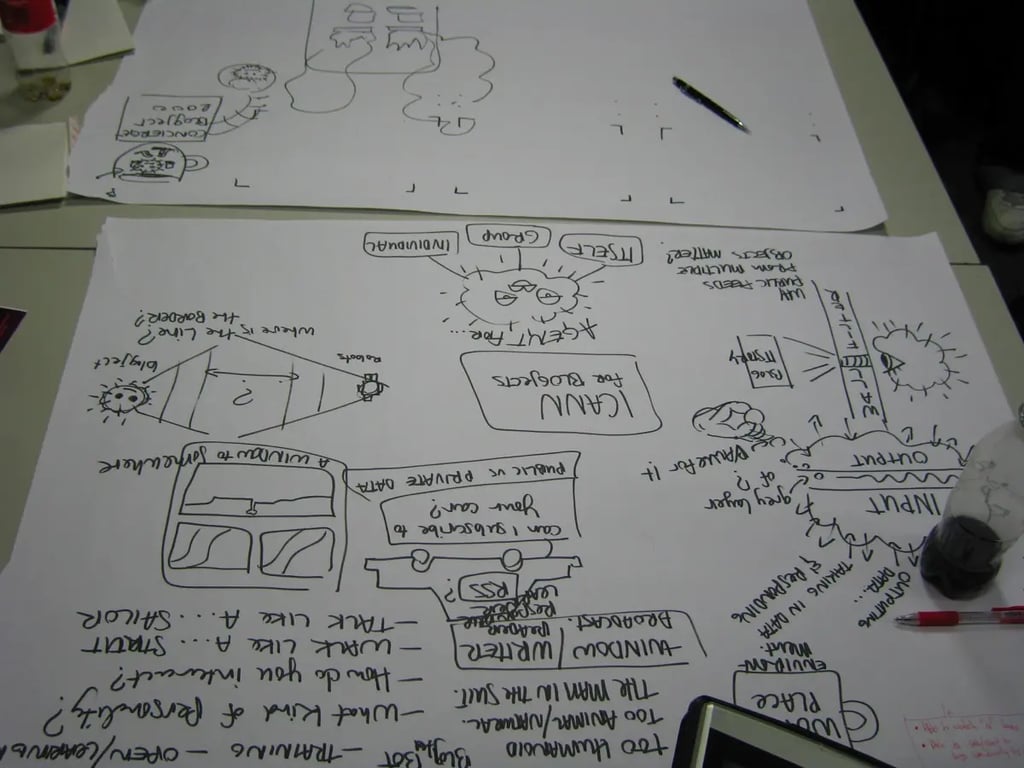 TOO HUMANOID
TOO ANIMAL/NATURAL.
THE MAN IN THE SUIT.
— TRAINING — OPEN/
— What Kind of Personality?
— How do you interact?
— WALK LIKE A... STRAIT
— TALK LIKE A... SAILOR
WINDOW / WRITER
BROADCAST.
READER
RSS
can I subscribe to
your car?
PUBLIC vs PRIVATE DATA
A WINDOW to Somewhere
PLACE
ENVIRON
MENT.
OUTPUTING
DATA...
TAKING IN DATA
& RESPONDING
INPUT
OUTPUT
grey layer
of ?
BLOG
ITSELF
WHY
PUBLIC FEEDS
FROM MULTIPLE
OBJECTS MATTER?
ICANN
for BLOGJECTS
AGENT FOR...
ITSELF
GROUP
INDIVIDUAL
Robots
?
Blogject
Where is the Line?
the BORDER?
CONCIERGE
Blogject